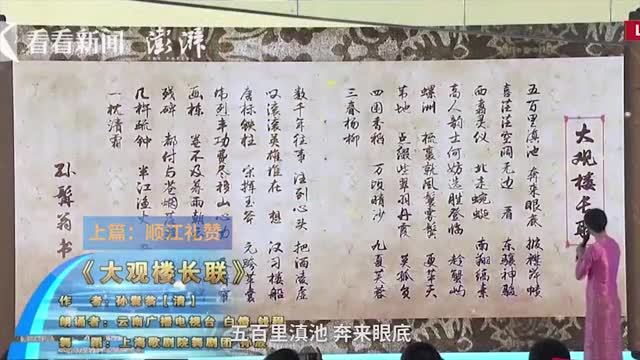 看看新闻
澎湃
大观楼长联
五百里滇池 奔来眼底 披襟岸帻
喜茫茫空阔无边 看 东骧神骏
西翥灵仪 北走蜿蜒 南翔缟素
高人韵士何妨选胜登临 趁蟹屿
螺洲 梳裹就风鬟雾鬓 更苹天
苇地 点缀些翠羽丹霞 莫孤负
四围香稻 万顷晴沙 九夏芙蓉
三春杨柳
数千年往事 注到心头 把酒凌虚
叹滚滚英雄谁在 想 汉习楼船
唐标铁柱 宋挥玉斧 元跨革囊
伟烈丰功费尽移山心力
画栋 卷不及暮雨朝
残碑 都付与苍烟
几杵疏钟 半江渔火
一枕清霜
孙髯翁书
上篇：顺江礼赞
《大观楼长联》
作 者：孙髯翁【清】
朗诵者：云南广播电视台
舞 蹈：上海歌剧院舞剧团
五百里滇池 奔来眼底